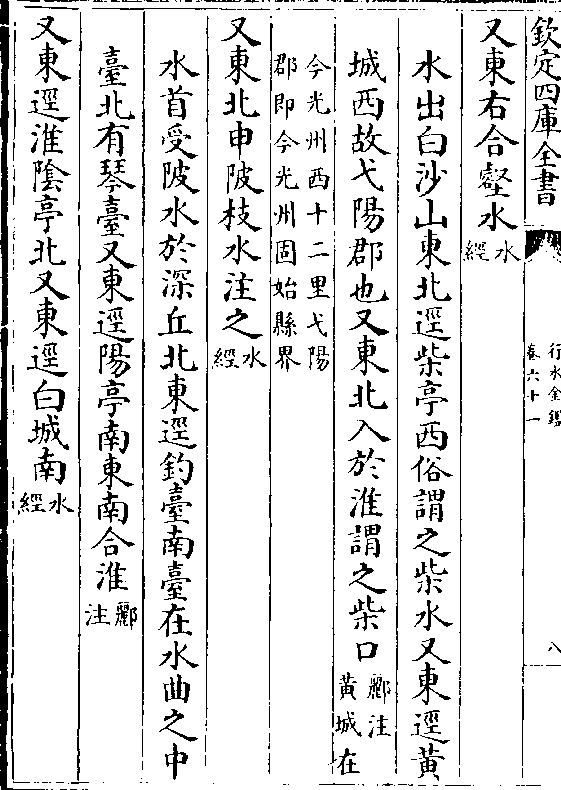 欽定四庫全書
行水金鑑
卷六十一
八
又東右合壑水水經
水出白沙山東北逕柴亭西俗謂之柴水又東逕黃
城西故弋陽郡也又東北入於淮謂之柴口酈注黃城在
今光州西十二里弋陽
郡即今光州固始縣界
又東北申陂枝水注之水經
水首受陂水於深丘北東逕釣臺南臺在水曲之中
臺北有琴臺又東逕陽亭南東南合淮酈注
又東逕淮陰亭北又東逕白城南水經